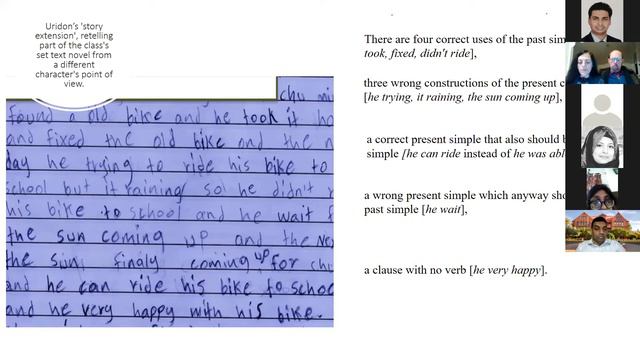 Uridon's 'story
extension', retelling
part of the class's
set text novel from
a different
character's point of
view.
chu mi
found a old bike and he took it ho
and fixed the old bike and the n
day he trying to ride his bike to
school but it raining so he didn't r
his bike to school and he wait f
the sun coming up and the Nex
the sun finaly coming up for chu
and he can ride his bike to schoo
and he very happy with his bike.
There are four correct uses of the past sim
took, fixed, didn't ride],
three wrong constructions of the present c
[he trying, it raining, the sun coming up],
a correct present simple that also should b
simple [he can ride instead of he was abl
a wrong present simple which anyway sho
past simple [he wait],
a clause with no verb [he very happy].